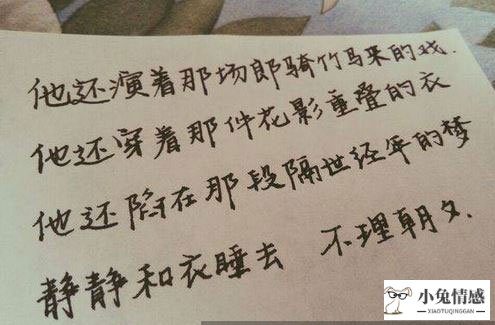 他还演着那场郎骑竹马来的戏.
他还穿着那件花影重叠的衣
他还陷在那段隔世经年的梦
静静和衣睡去 不理朝夕.
小兔情感
XIAOTUQINGGAN